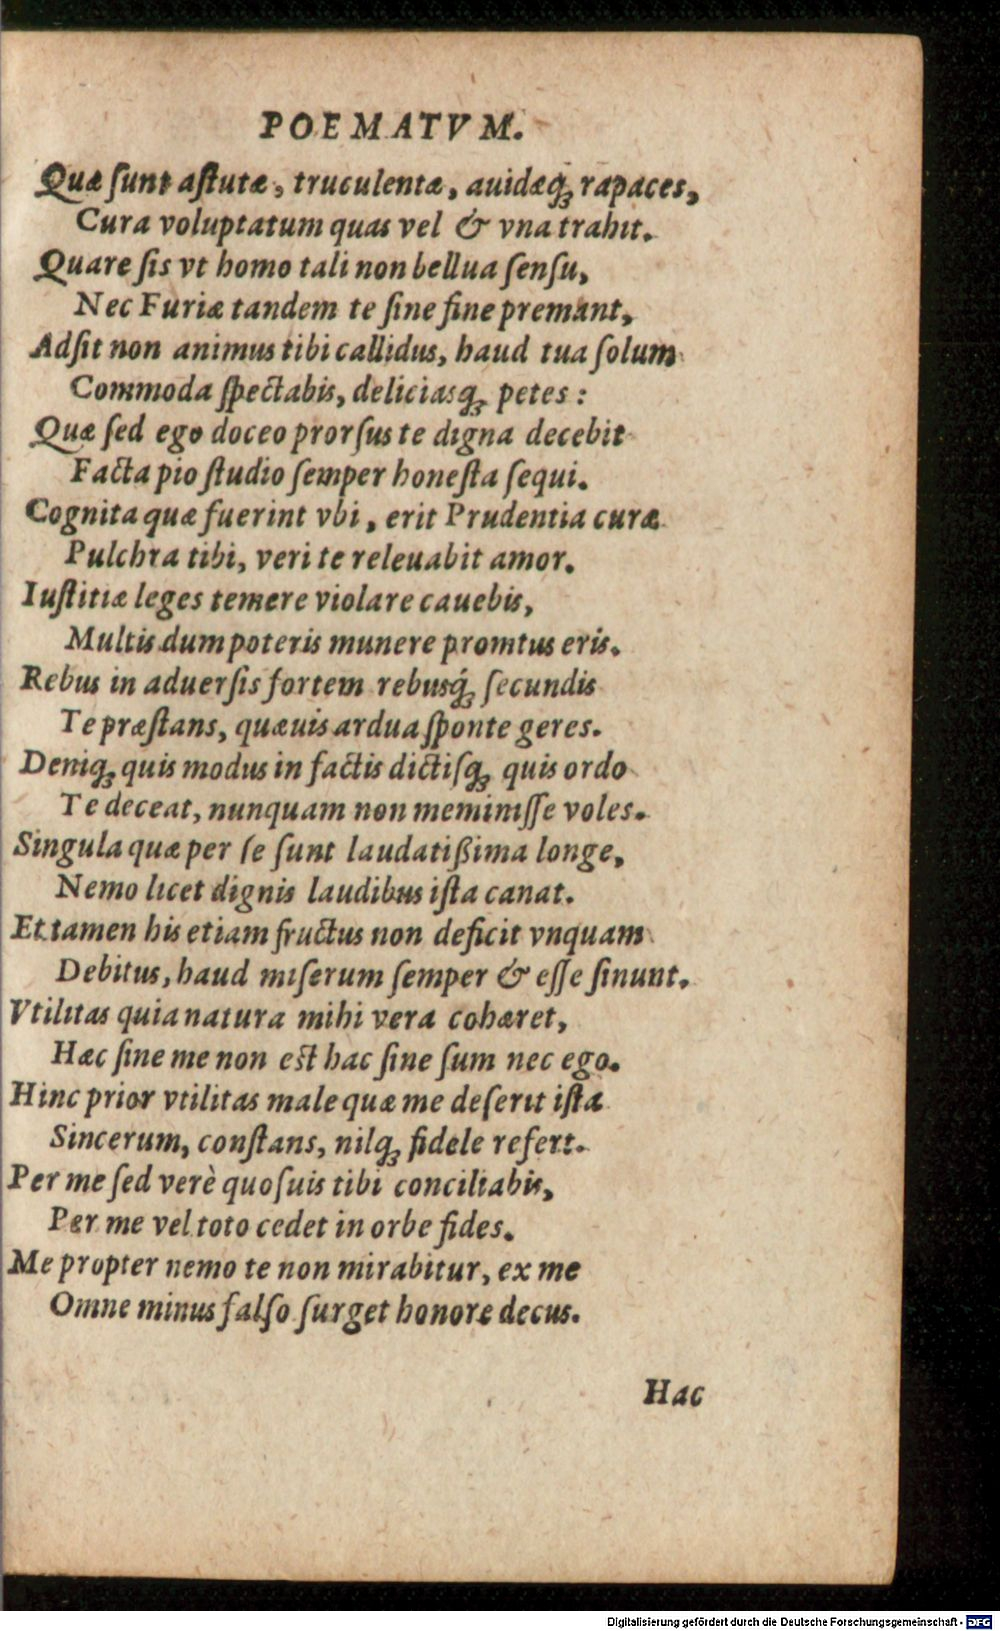 POEMATVM.
Quæ ſunt aſtutæ, truculentæ, auidæq́; rapaces,
Cura voluptatum quas vel & vna trahit.
Quare ſis vt homo tali non bellua ſenſu,
Nec Furiæ tandem te ſine fine premant,
Adſit non animus tibi callidus, haud tua ſolum
Commoda ſpectabis, deliciasq; petes:
Quæ ſed ego doceo prorſus te digna decebit
Facta pio ſtudio ſemper honeſta ſequi.
Cognita quæ fuerint vbi, erit Prudentia curæ
Pulchra tibi, veri te releuabit amor.
Iuſtitiæ leges temere violare cauebis,
Multis dum poteris munere promtus eris.
Rebus in aduerſis fortem rebusq́; ſecundis
Te præſtans, quæuis ardua ſponte geres.
Deniq; quis modus in factis dictiſq; quis ordo
Te deceat, nunquam non meminiſſe voles.
Singula quæ per ſe ſunt laudatißima longe,
Nemo licet dignis laudibus iſta canat.
Et tamen his etiam fructus non deficit vnquam
Debitus, haud miſerum ſemper & eſſe ſinunt.
Vtilitas quia natura mihi vera cohæret,
Hæc ſine me non eſt hac ſine ſum nec ego.
Hinc prior vtilitas male quæ me deſerit iſta
Sincerum, conſtans, nilq; fidele refert.
Per me ſed verè quoſuis tibi conciliabis,
Per me vel toto cedet in orbe fides.
Me propter nemo te non mirabitur, ex me
Omne minus falſo ſurget honore decus.
Hac
Digitalisierung gefördert durch die Deutsche Forschungsgemeinschaft - DFG